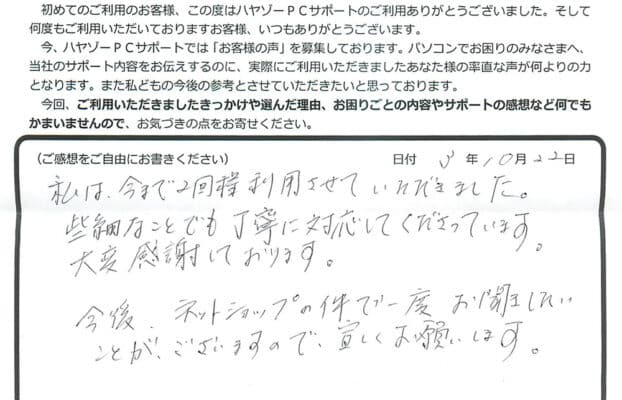 初めてのご利用のお客様、この度はハヤゾーPCサポートのご利用ありがとうございました。そして
何度もご利用いただいておりますお客様、いつもありがとうございます。
今、ハヤゾーPCサポートでは「お客様の声」を募集しております。パソコンでお困りのみなさまへ、
当社のサポート内容をお伝えするのに、実際にご利用いただきましたあなた様の率直な声が何よりの力
となります。また私どもの今後の参考とさせていただきたいと思っております。
今回、ご利用いただきましたきっかけや選んだ理由、お困りごとの内容やサポートの感想など何でも
かまいませんので、お気づきの点をお寄せください。
(ご感想をご自由にお書きください) 日付 年10月22日
私は、今まで2回程利用させていただきました。
些細なことでも丁寧に対応してくださっています。
大変感謝しております。
今後、ネットショップの件で一度お聞きしたい
ことが、ございますので、宜しくお願いします。